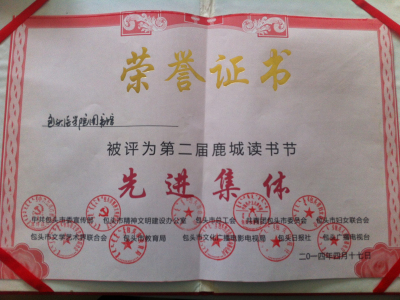 荣誉证书
包头医学院图书馆
被评为第二届鹿城读书节
先进集体
中共包头市委宣传部 包头市精神文明建设办公室 包头市总工会 共青团包头市委员会 包头市妇女联合会
包头市文学艺术界联合会 包头市教育局 包头市文化广播电影电视局 包头日报社 包头广播电视台
二〇一四年四月十七日